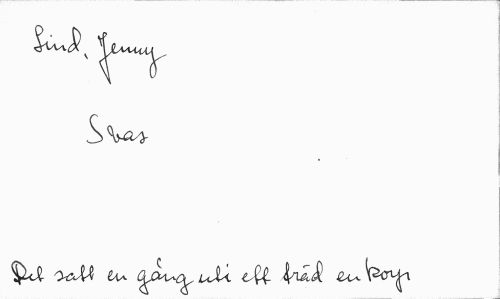 Lind, Jenny
Svas
Det satt en gång uti ett träd en korp